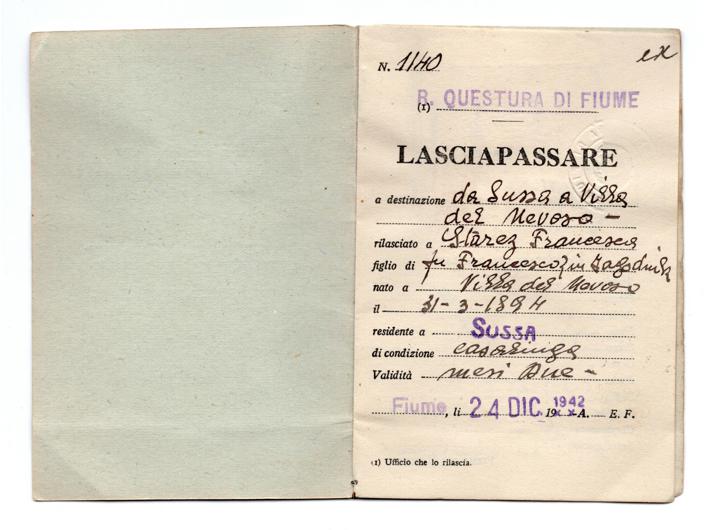 ex
N. 1140
R. QUESTURA DI FIUME
(1)
LASCIAPASSARE
a destinazione da Sussa a Villa
del Nevoso -
rilasciato a Starez Francesca
figlio di fu Francesco, in
nato a Villa del Nevoso
il 31-3-1894
residente a SUSSA
di condizione casalinga
Validità mesi Due -
Fiume, li 24 DIC. 1942 19 A. E. F.
(1) Ufficio che lo rilascia.